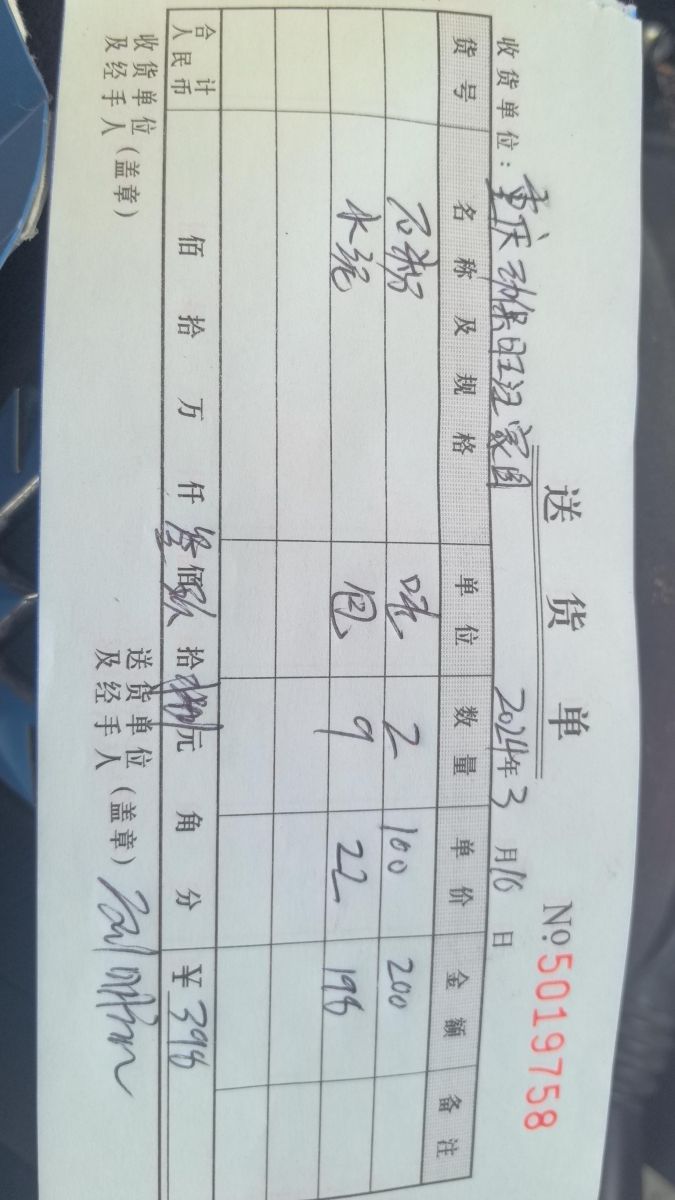 送货单
№5019758
收货单位：重庆动保旺江家园 2024年3月16日
货号 名称及规格 单位 数量 单价 金额 备注
石粉 吨 2 100 200
水泥 包 9 22 198
合计人民币 佰 拾 万 仟 叁佰玖拾捌元 角 分 ￥398
收货单位及经手人（盖章） 送货单位及经手人（盖章）